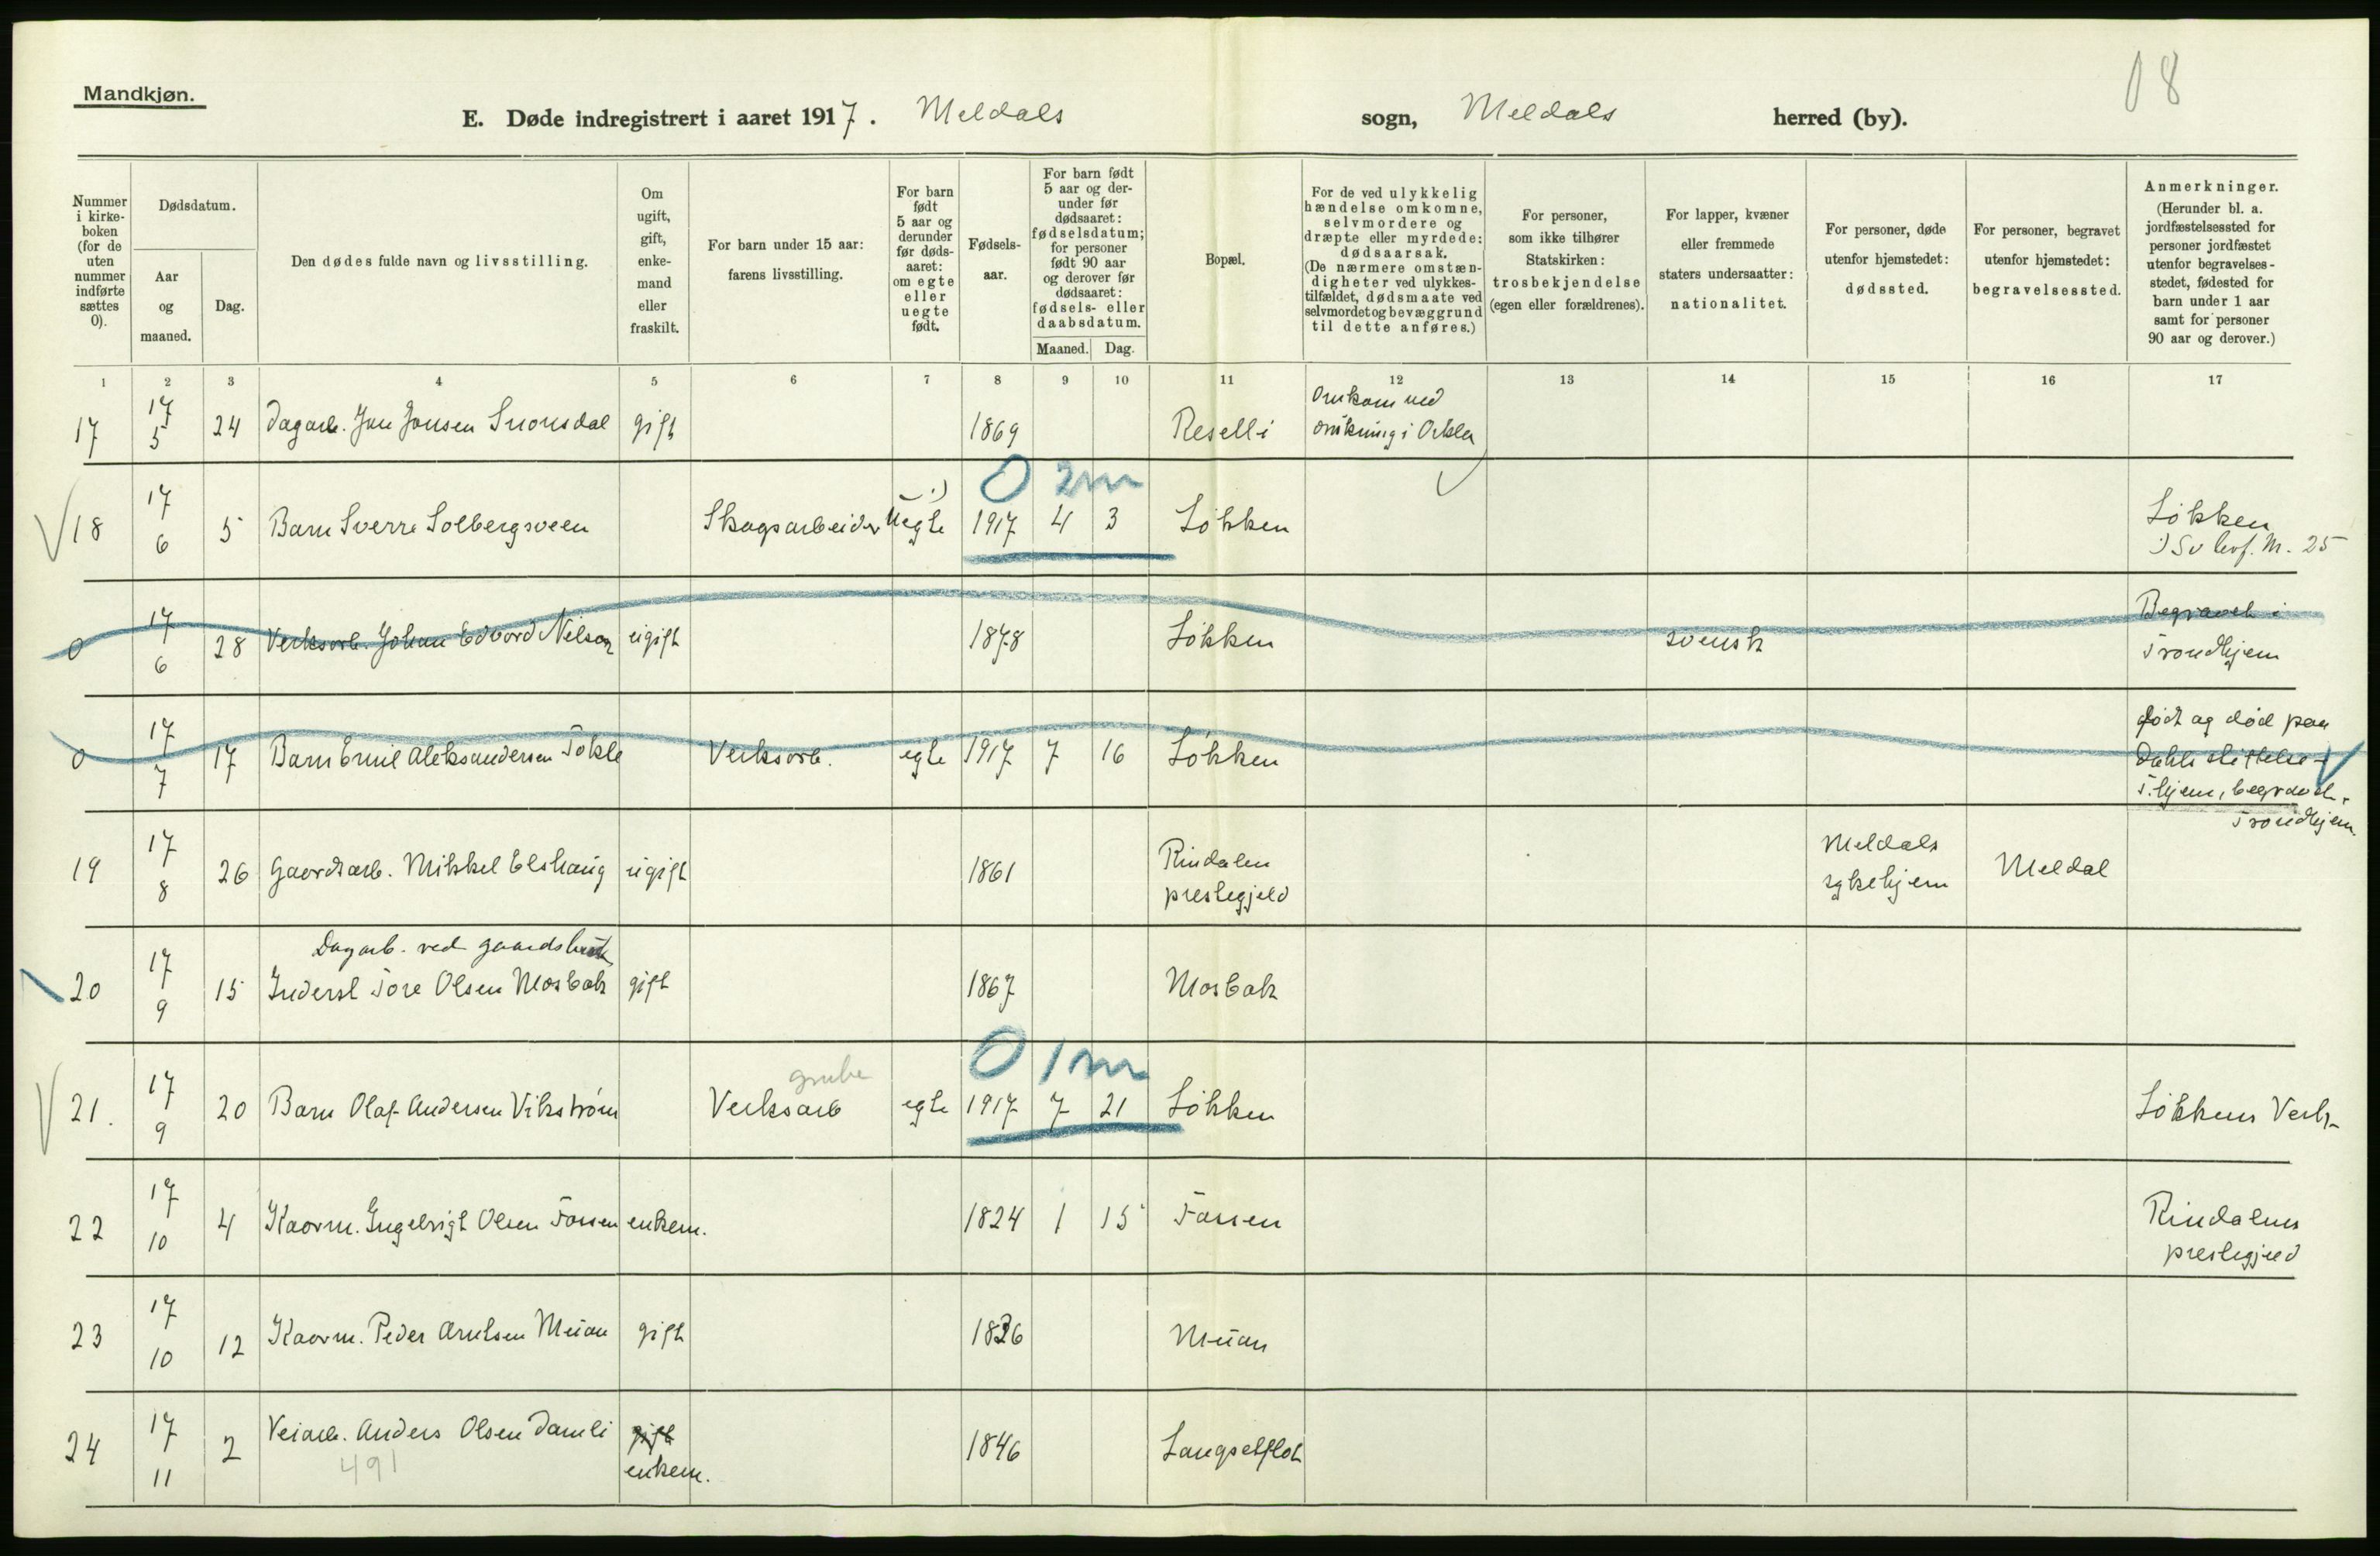 Mandkjøn.
18
E. Døde indregistrert i aaret 1917. Meldals sogn, Meldals herred (by).
Nummer i kirkeboken (for de uten nummer indførte sættes 0).
Dødsdatum.
Aar og maaned.
Dag.
Den dødes fulde navn og livsstilling.
Om ugift, gift, enkemand eller fraskilt.
For barn under 15 aar: farens livsstilling.
For barn født 5 aar og derunder før dødsaaret: om egte eller uegte født.
Fødselsaar.
For barn født 5 aar og derunder før dødsaaret: fødselsdatum; for personer født 90 aar og derover før dødsaaret: fødsels- eller daabsdatum.
Maaned. Dag.
Bopæl.
For de ved ulykkelig hændelse omkomne, selvmordere og dræpte eller myrdede: dødsaarsak. (De nærmere omstændigheter ved ulykkestilfældet, dødsmaate ved selvmordet og bevæggrund til dette anføres.)
For personer, som ikke tilhører Statskirken: trosbekjendelse (egen eller forældrenes).
For lapper, kvæner eller fremmede staters undersaatter: nationalitet.
For personer, døde utenfor hjemstedet: dødssted.
For personer, begravet utenfor hjemstedet: begravelsessted.
Anmerkninger. (Herunder bl. a. jordfæstelsessted for personer jordfæstet utenfor begravelsesstedet, fødested for barn under 1 aar samt for personer 90 aar og derover.)
1 2 3 4 5 6 7 8 9 10 11 12 13 14 15 16 17
17 17 5 24 Dagarb. Jon Jonsen Snorisdal gift 1869 Reselli Omkom ved drukning i Orkla
0 2m
18 17 6 5 Barn Sverre Solbergsveen Skogsarbeider Uegte 1917 4 3 Løkken Løkken
0 17 6 28 Verksarb. Johan Edvard Nilson ugift 1878 Løkken svensk Begravet i Trondhjem
0 17 7 17 Barn Emil Aleksandersen Tokle Verksarb. egte 1917 7 16 Løkken født og død paa Dahls stiftelse T.hjem, begravet Trondhjem
19 17 8 26 Gaardsarb. Mikkel Elshaug ugift 1861 Rindalen prestegjeld Meldals sykehjem Meldal
Dagarb. ved gaardsbruk
20 17 9 15 Inderst Tore Olsen Mosbak gift 1867 Mosbak
0 1m
grube
21. 17 9 20 Barn Olaf Andersen Vikstrøm Verksarb egte 1917 7 21 Løkken Løkkens Verk
22 17 10 4 Kaarm. Ingebrigt Olsen Fossen enkem. 1824 1 15 Fossen Rindalens prestegjeld
23 17 10 12 Kaarm. Peder Arntsen Muan gift 1836 Muan
24 17 11 2 Veiarb. Anders Olsen Damli gift enkem. 1846 Langsetflot
491